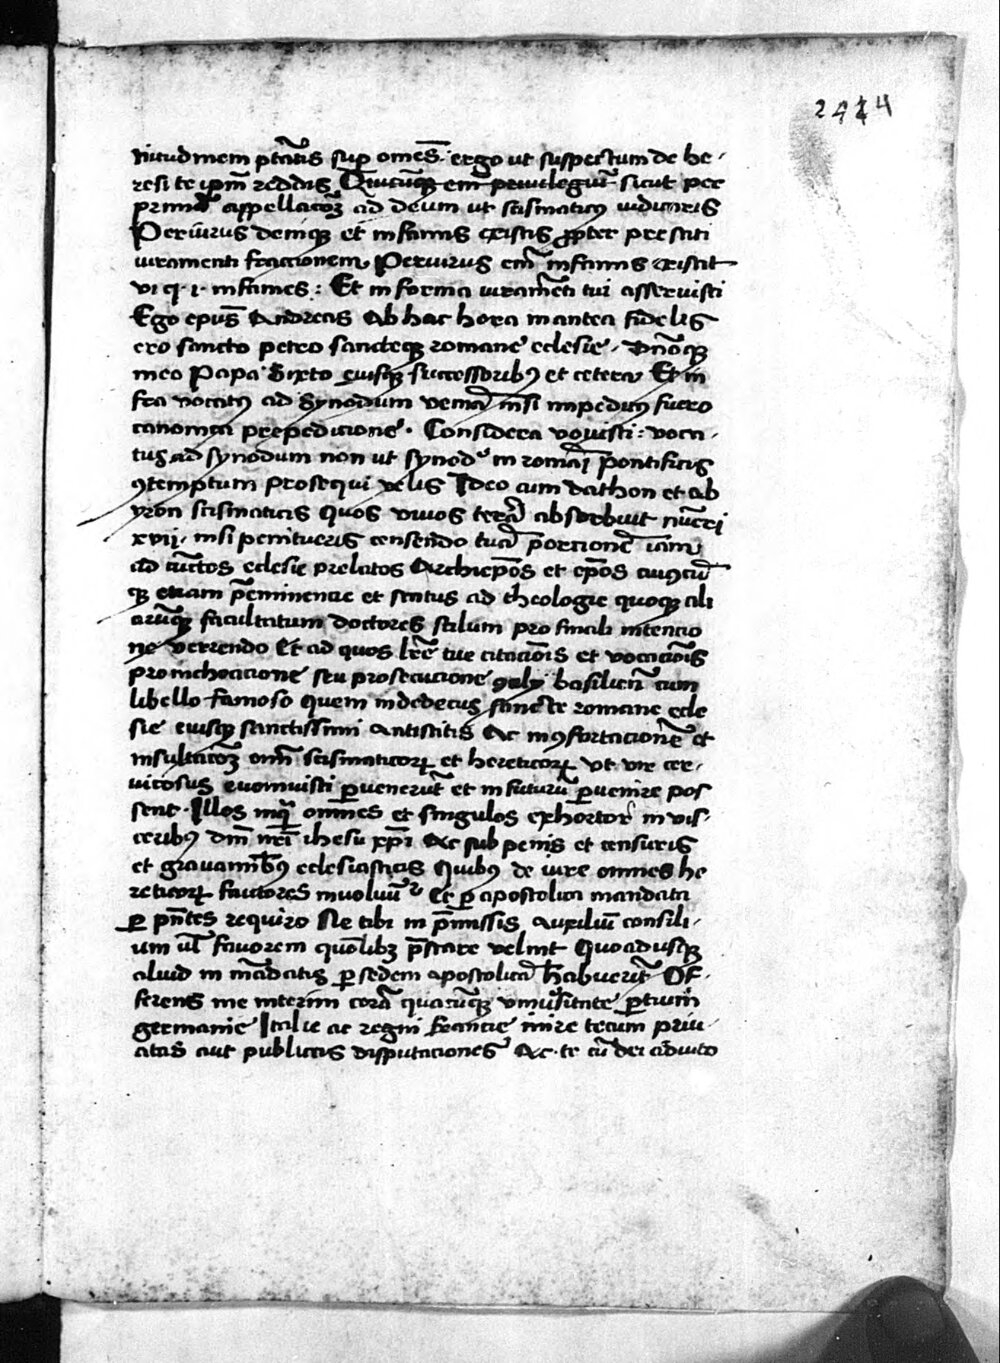 2424
nitudinem ptātis sup omēs· ergo ut suspectum de he-
resi te ipm̄ reddis Quicūqꝫ em̄ priuilegiū sicut per
primā appellacōꝫ ad deum ut scismaticꝰ iudicaris
Periurus deniqꝫ et infamis existis ꝓpter prestiti
iuramenti fraccionem Periurus em̄ infamis existit
vi q i infames : Et in forma iuramēti tui asseruisti
Ego epūs Andreas Ab hac hora in antea fidelis
ero sancto petro sancteqꝫ romane eclesie dn̄oqꝫ
meo Papa Sixto eiusqꝫ successoribꝰ et cetera Et in
fra vocatꝰ ad Synodum veniā nisi impeditꝰ fuero
canonica prepedicione · Considera vouisti : voca-
tus ad synodum non ut synodū in romāi pontificis
ꝯtemptum prosequi velis Ideo cum dathon et ab
yron scismaticis quos viuos terrā absorbuit nūeri
xvij · nisi penitueris censendo tuā porcionē iam
ad cūctos eclesie prelatos Archiep̄os et ep̄os cuiꝰcū
qꝫ etiam p̄eminencie et status ad theologie quoqꝫ ali
arūqꝫ facultatum doctores stilum pro finali intencio
ne verrendo Et ad quos lr̄e tue citaciōis et vocaciōis
pro inchoacione seu prosecucione ꝯcily basilien̄ cum
libello famoso quem in dedecus sancte romane ecle
sie eiusqꝫ sanctissimi Antistitis Ac in ꝯfortacionē et
insultacōꝫ om̄ scismaticoꝝ et hereticoꝝ ut vir cer-
uicosus euomuisti ꝑuenerūt et in futurū ꝑuenire pos
sent · Illos inqͣ omnes et singulos exhortor in vis-
ceribꝰ dn̄i nr̄i ihesu xp̄i Ac sub penis et censuris
et grauamībꝰ eclesiasticis Quibꝰ de iure omnes he
reticoꝝ fautores inuoluūr Et ꝑ apostolica mandata
ꝑ pn̄tes requiro Ne tibi in p̄missis Auxiliū consili-
um ul̄ fauorem quōlibꝫ p̄stare velint Quoadusqꝫ
aliud in mādatis ꝑ sedem apostolicā habuerīt Of-
ferens me interim corā quacūqꝫ vniūsitate ꝑtium
germanie Italie ac regni francie inire tecum priu-
atas aut publicas disputaciones Ac te cū dei adiuto